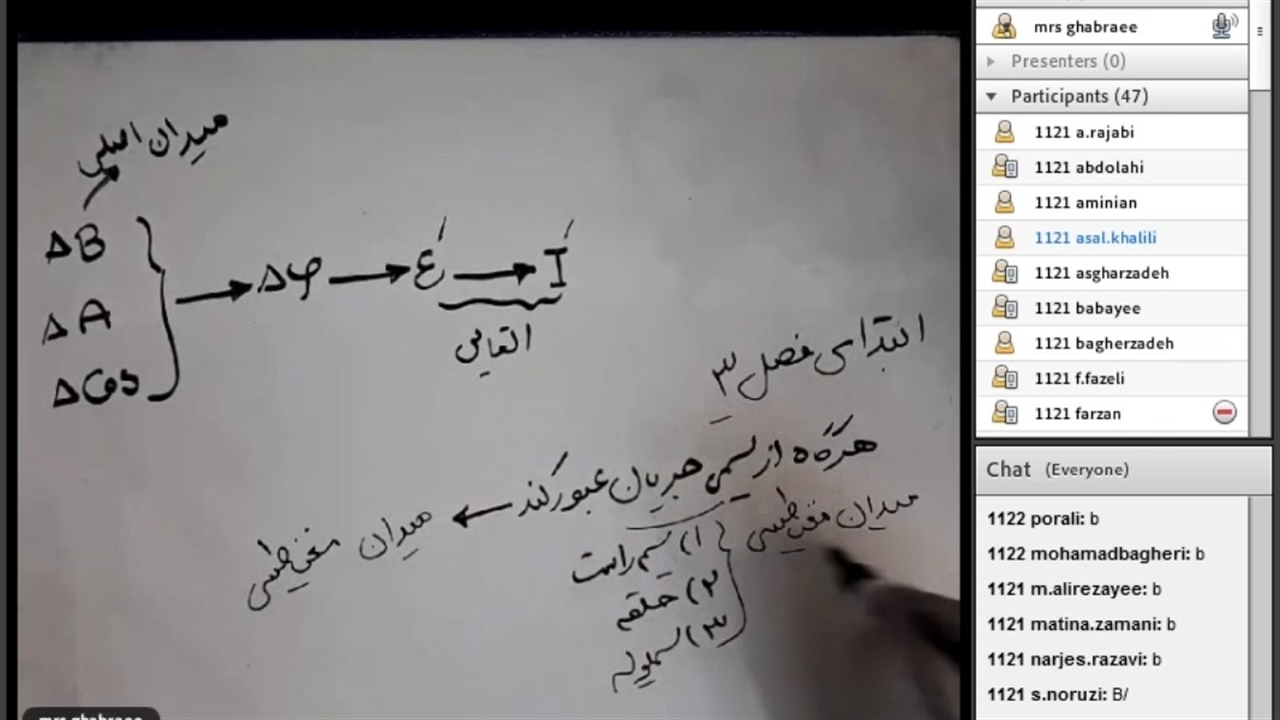 میدان اصلی
ΔB
ΔA
ΔCos
} → Δφ → ε′ → I′
القایی
ابتدای فصل ۳
هرگاه از سیمی جریان عبور کند ← میدان مغناطیسی
میدان مغناطیسی
۱) سیم راست
۲) حلقه
۳) سیملوله
mrs ghabraee
mrs ghabraee
Presenters (0)
Participants (47)
1121 a.rajabi
1121 abdolahi
1121 aminian
1121 asal.khalili
1121 asgharzadeh
1121 babayee
1121 bagherzadeh
1121 f.fazeli
1121 farzan
Chat (Everyone)
1122 porali: b
1122 mohamadbagheri: b
1121 m.alirezayee: b
1121 matina.zamani: b
1121 narjes.razavi: b
1121 s.noruzi: B/